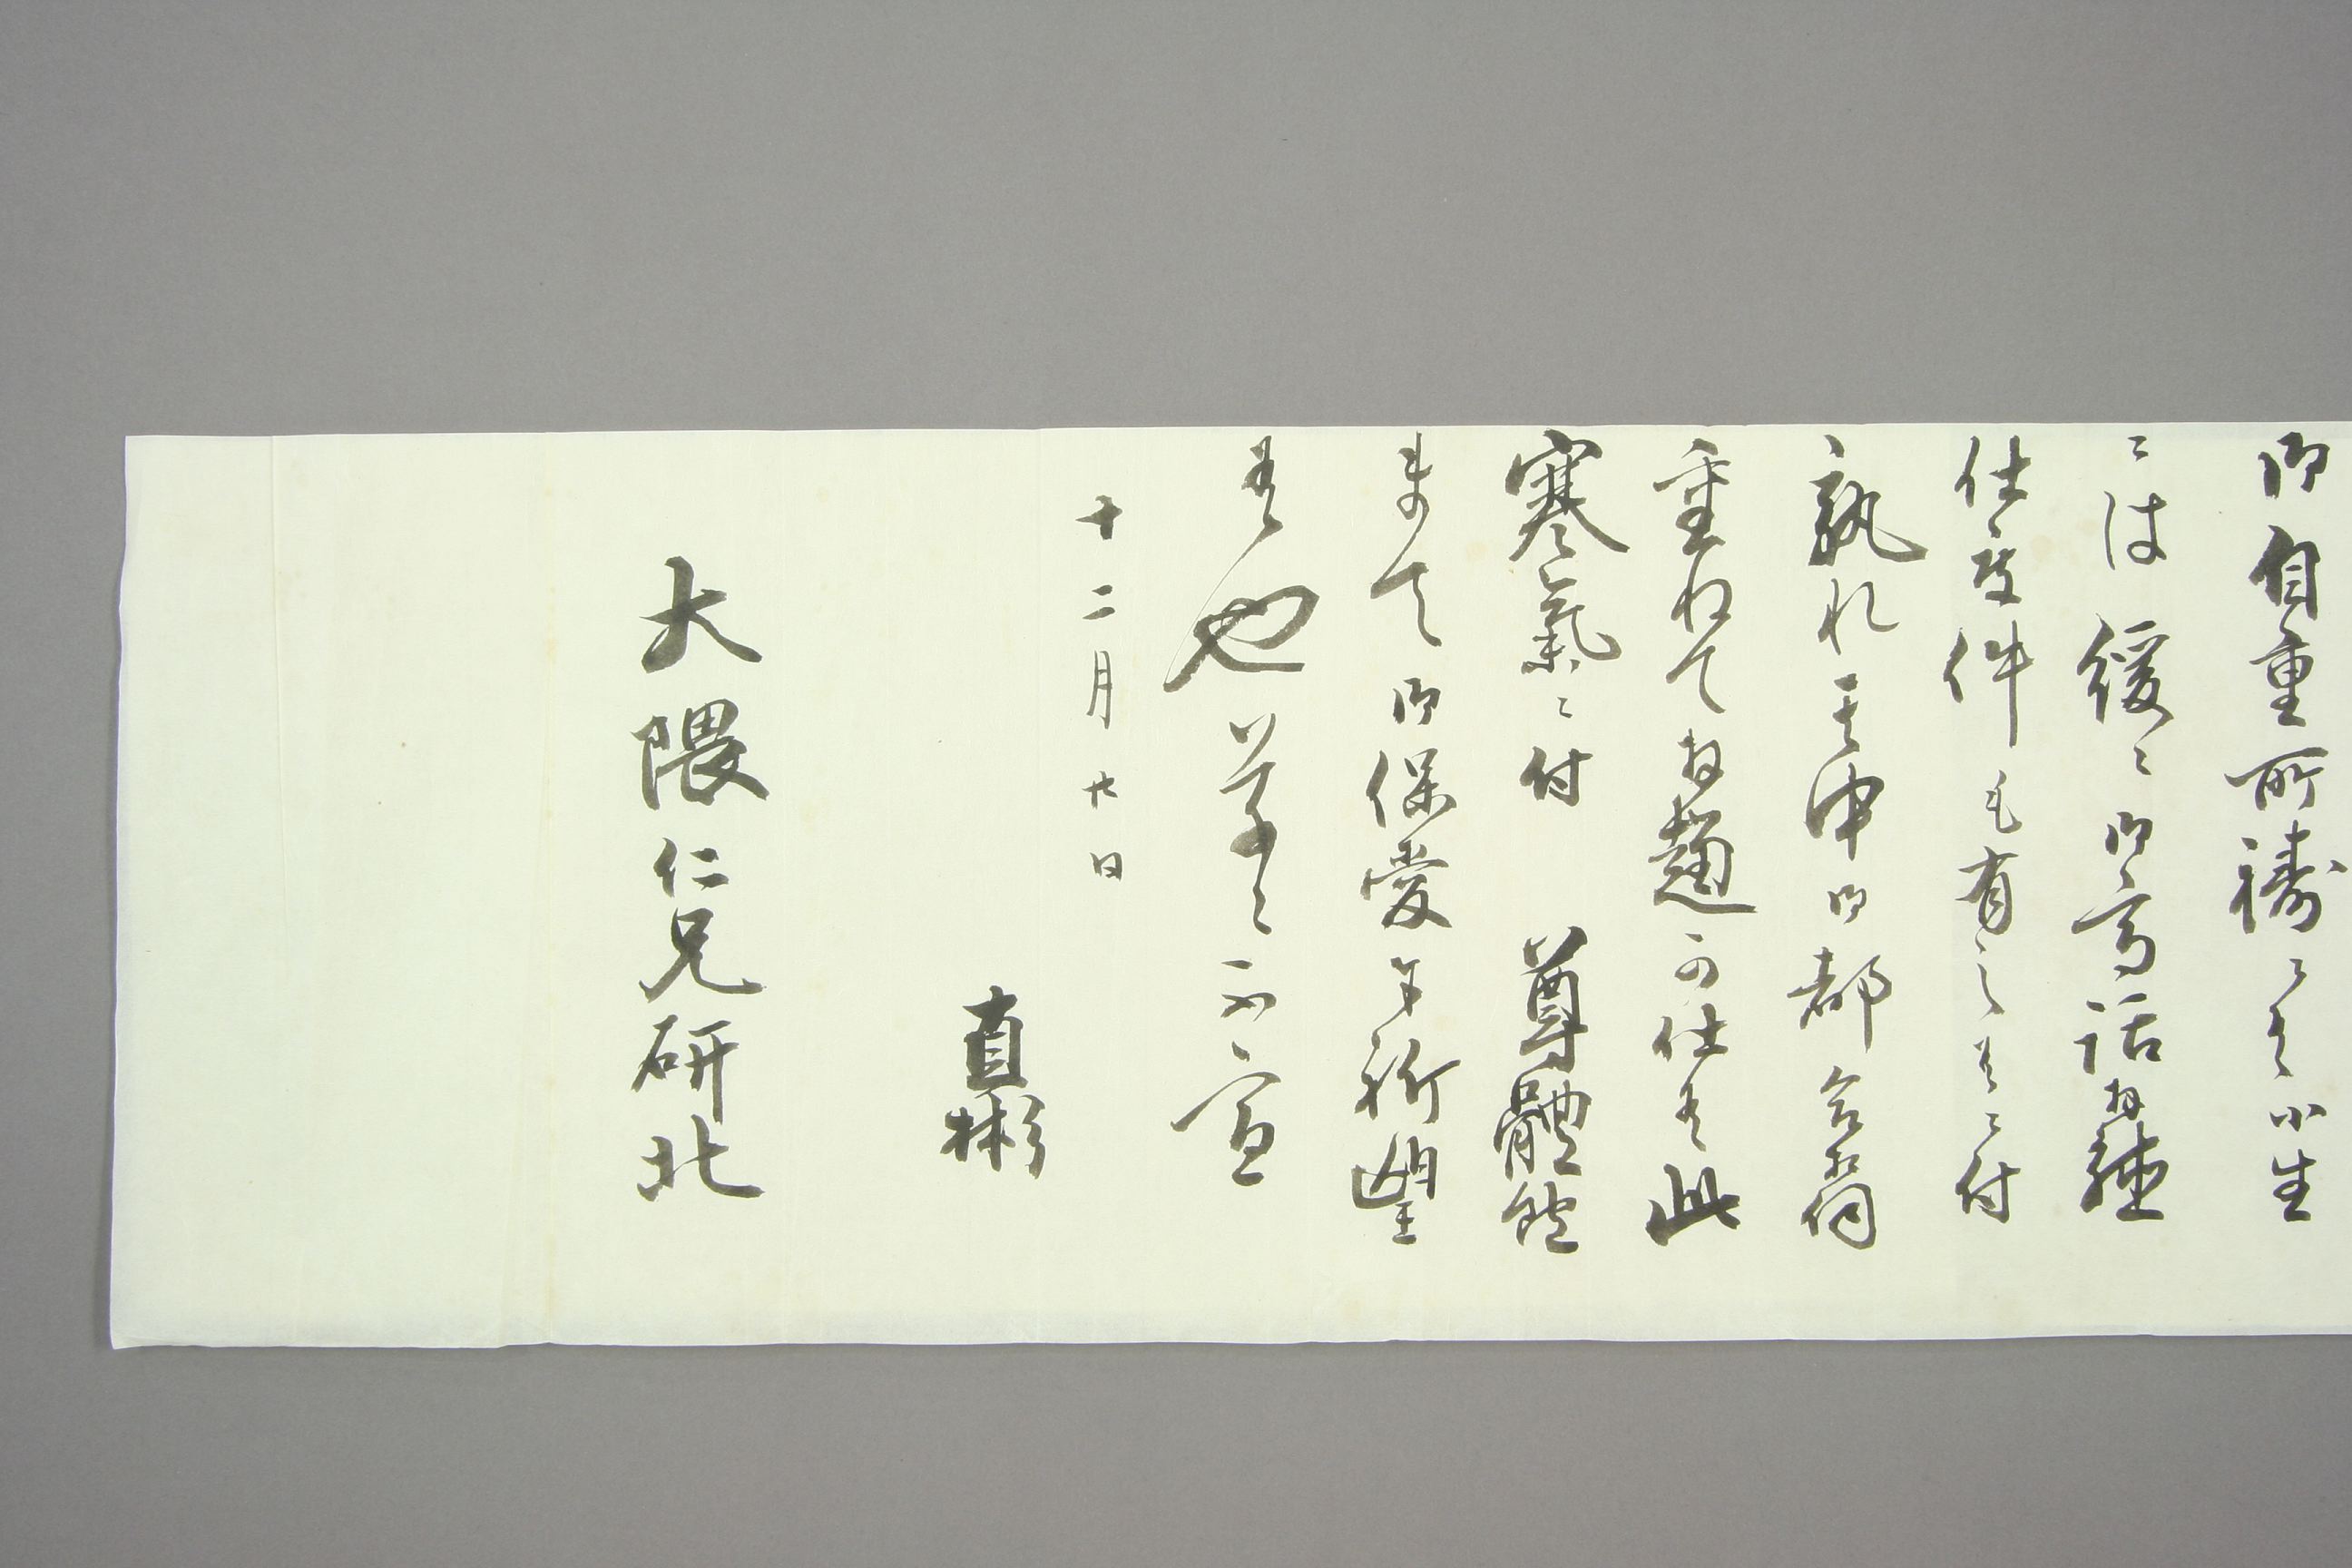 御自重所禱ニ候小生
ニは緩々御高話拝聴
仕度件も有之候ニ付
孰れ其中御都合相伺
重ねて拝趨可仕候此
寒氣ニ付 尊體飽
まて御保愛奉祈望
候也草々不宣
十二月廿日
直彬
大隈仁兄研北